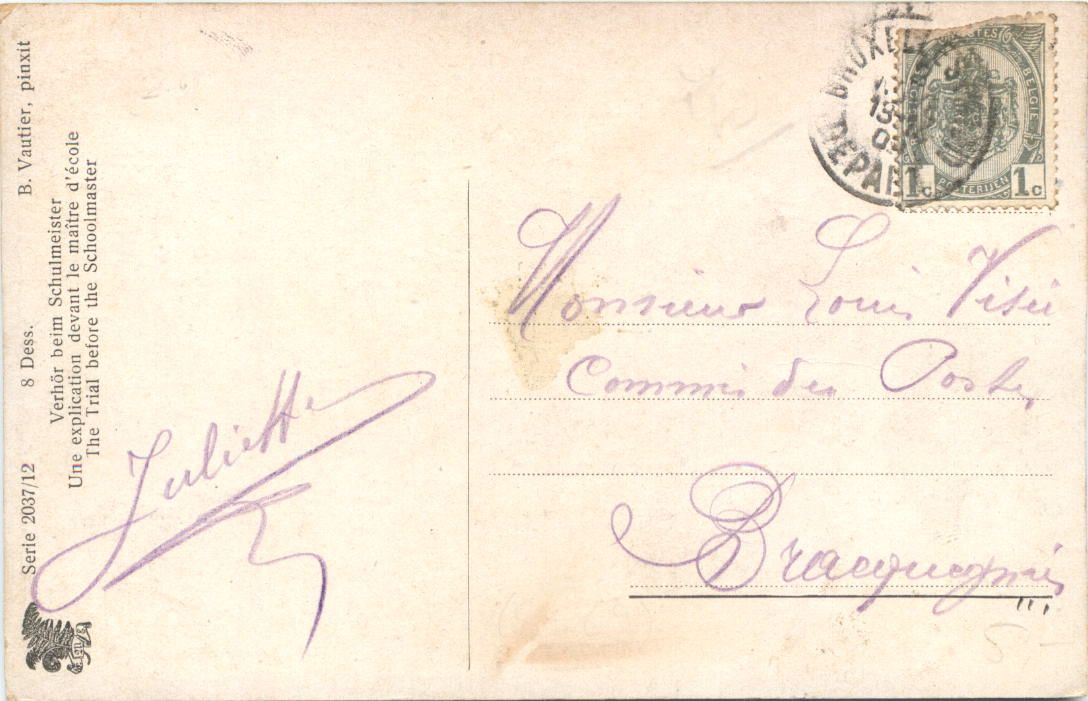 Serie 2037/12 8 Dess. B. Vautier, pinxit
Verhör beim Schulmeister
Une explication devant le maître d'école
The Trial before the Schoolmaster
Juliette
BRUXELLES
DEPART
POSTES BELGIE
POSTERIJEN
1c 1c
Monsieur Louis
Commis des Postes
Bracquegnies
5,-